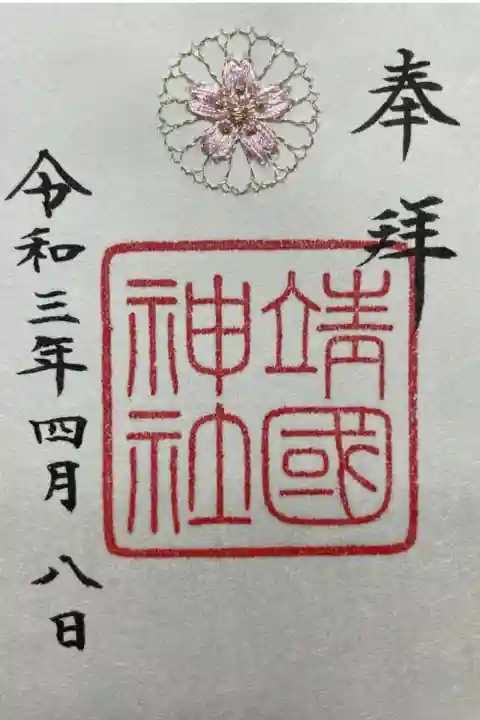 奉拜
靖國
神社
令和三年四月八日